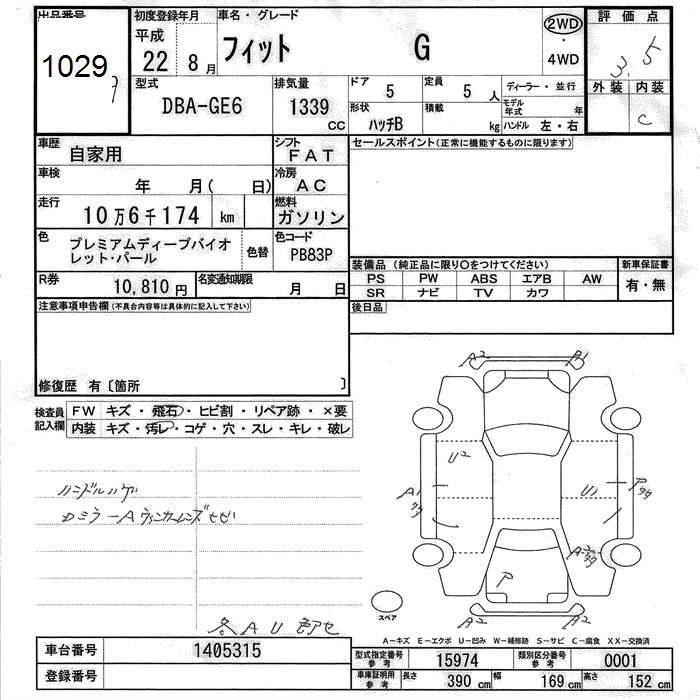 出品番号 初度登録年月 車名・グレード 2WD・4WD 評価点
1029 平成 22年 8月 フィット G 3.5
型式 排気量 ドア 定員 ディーラー・並行 外装 内装
DBA-GE6 1339 CC 5 5 人 モデル年式 年 C
形状 積載 ハッチB kg ハンドル 左・右
車歴 自家用 シフト FAT セールスポイント(正常に機能するものに限ります)
車検 年 月( 日) 冷房 AC
走行 10万6千174 km 燃料 ガソリン
色 プレミアムディープバイオレット・パール 色替 色コード PB83P
装備品 (純正品に限り〇をつけてください) 新車保証書
PS PW ABS エアB AW 有・無
SR ナビ TV カワ
R券 10,810円 名変通知期限 月 日
後日品
注意事項申告欄(不具合内容等は具体的に記入して下さい)
修復歴 有〔箇所 〕
検査員記入欄 FW キズ・飛石・ヒビ割・リペア跡・×要
内装 キズ・汚レ・コゲ・穴・スレ・キレ・破レ
A2 A1
U2
A1
U1
P
A2 A2
ハンドルハゲ
スペア
A-キズ E-エクボ U-凹み W-補修跡 S-サビ C-腐食 XX-交換済
車台番号 1405315
登録番号
型式指定番号 参考 15974 類別区分番号 参考 0001
車庫証明用 参考 長さ 390 cm 幅 169 cm 高さ 152 cm